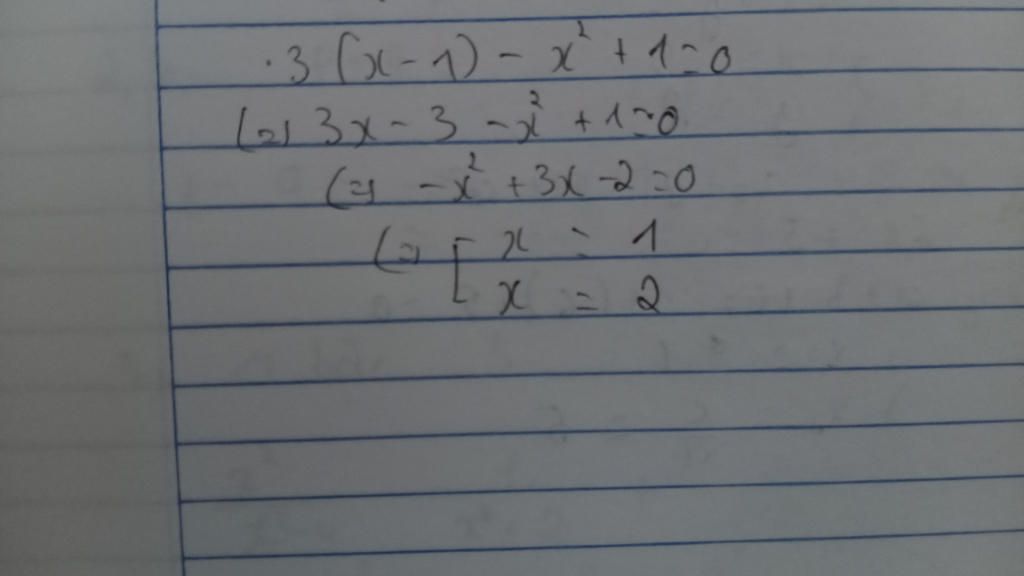 . 3 (x - 1) - x² + 1 = 0
(=) 3x - 3 - x² + 1 = 0
(=) - x² + 3x - 2 = 0
(=) [ x = 1
x = 2